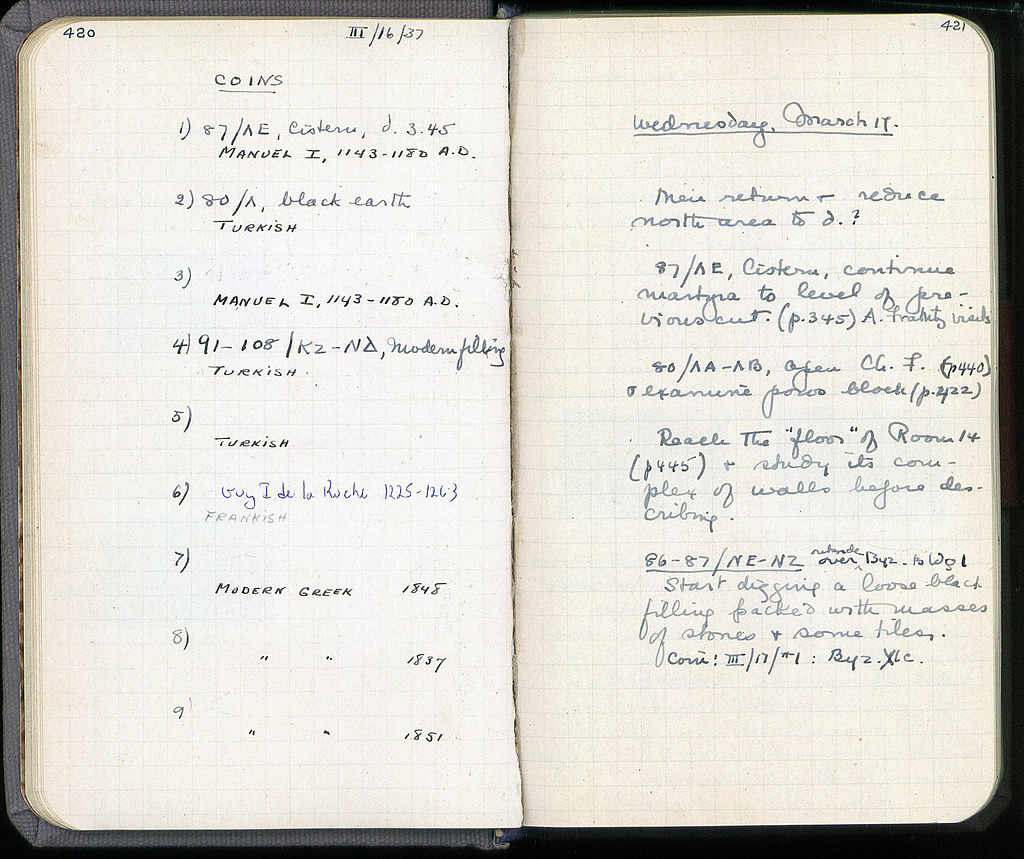 420
III/16/37
COINS
1) 87/ΛE, Cistern, d. 3.45
MANUEL I, 1143-1180 A.D.
2) 80/Λ, black earth
TURKISH
3)
MANUEL I, 1143-1180 A.D.
4) 91-108/KZ-NΔ, Modern filling
TURKISH
5)
TURKISH
6) Guy I de la Roche 1225-1263
FRANKISH
7)
MODERN GREEK 1848
8)
" " 1837
9
" " 1851
421
Wednesday, March 17.
Men return + reduce
north area to d.?
87/ΛE, Cistern, continue
martyra to level of pre-
vious cut. (p.345) A. Frantz visits
80/ΛA-ΛB, open Ch. F. (p440)
examine poros block (p.422)
Reach the "floor" of Room 14
(p445) + study its com-
plex of walls before des-
cribing.
86-87/NE-NZ outside over Byz.
Start digging a loose black
filling packed with masses
of stones + some tiles.
Coin: III/17/#1: Byz.